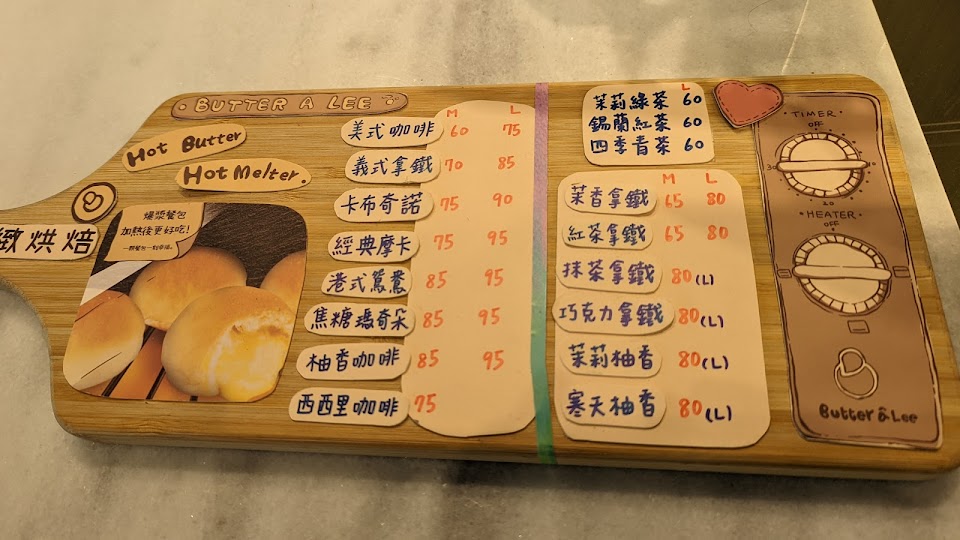 BUTTER A LEE
Hot Butter
Hot Melter.
緻烘焙
爆漿餐包
加熱後更好吃!
M L
美式咖啡 60 75
義式拿鐵 70 85
卡布奇諾 75 90
經典摩卡 75 95
港式鴛鴦 85 95
焦糖瑪奇朵 85 95
柚香咖啡 85 95
西西里咖啡 75
L
茉莉綠茶 60
錫蘭紅茶 60
四季青茶 60
M L
茉香拿鐵 65 80
紅茶拿鐵 65 80
抹茶拿鐵 80(L)
巧克力拿鐵 80(L)
茉莉柚香 80(L)
寒天柚香 80(L)
·TIMER·
OFF
30
10
20
·HEATER·
OFF
Butter a Lee